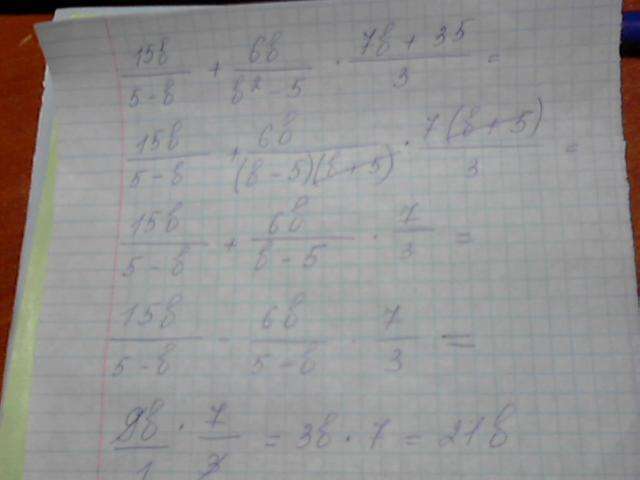 15в/(5-в) + 6в/(в²-5) · (7в+35)/3 =
15в/(5-в) + 6в/((в-5)(в+5)) · 7(в+5)/3 =
15в/(5-в) + 6в/(в-5) · 7/3 =
15в/(5-в) - 6в/(5-в) · 7/3 =
9в/1 · 7/3 = 3в · 7 = 21в